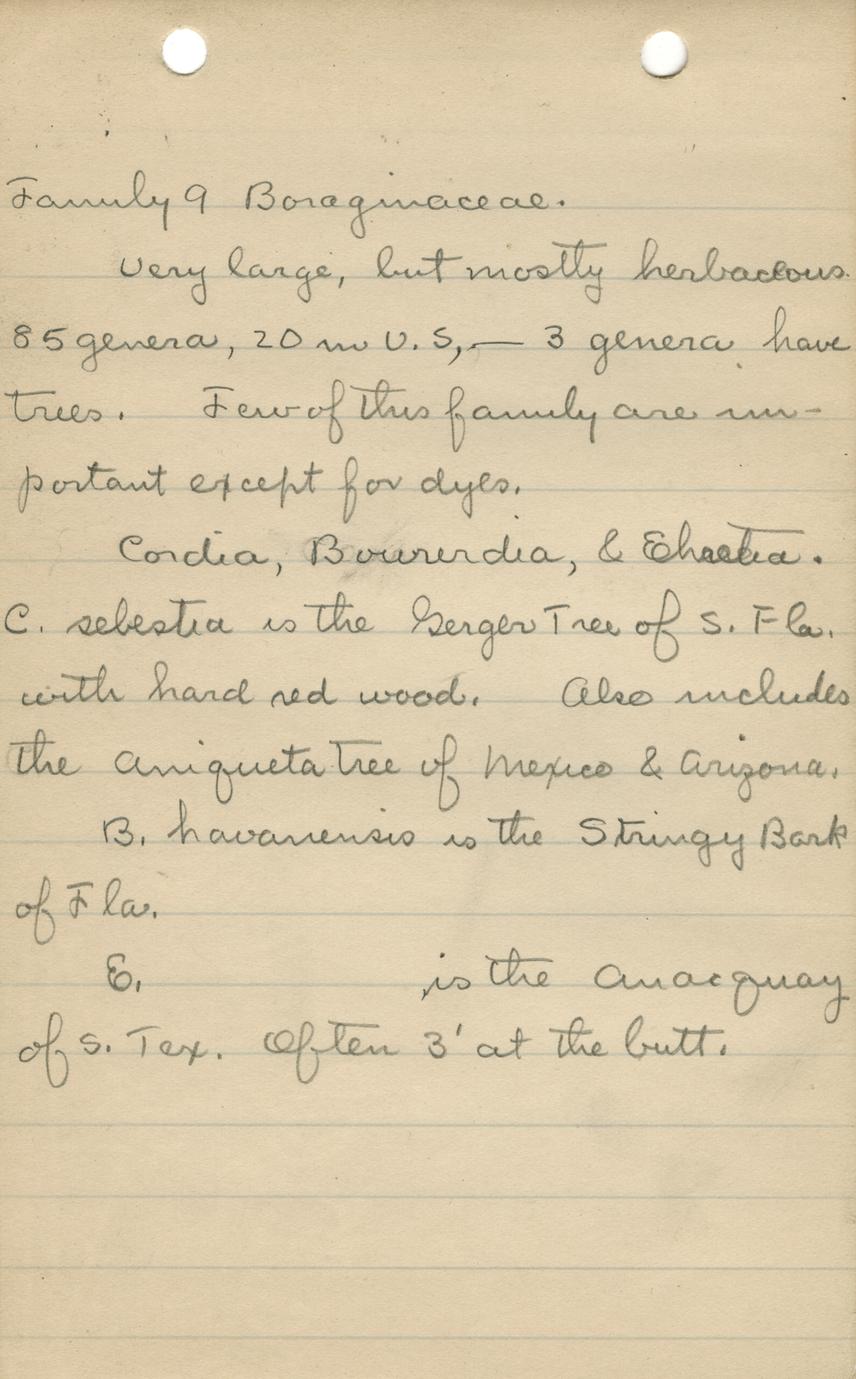 Family 9 Boraginaceae.
Very large, but mostly herbaceous.
85 genera, 20 in U.S, — 3 genera have
trees. Few of this family are im-
portant except for dyes.
Cordia, Bourerdia, &
C. sebestia is the Gerger Tree of S. Fla.
with hard red wood. Also includes
the aniqueta tree of Mexico & Arizona.
B. havanensis is the Stringy Bark
of Fla.
E. , is the anacquay
of S. Tex. Often 3' at the butt.